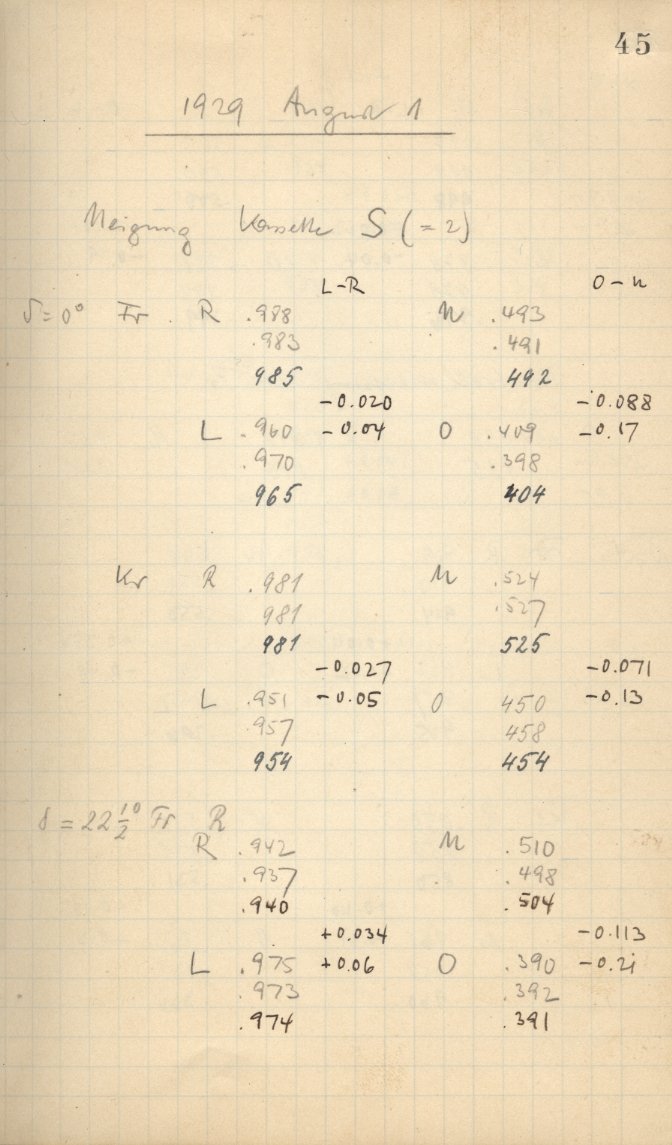 45
1929 August 1
Neigung Kassette S (=2)
L-R O-u
δ=0° Fr R .988 N .493
.983 .491
985 492
-0.020 -0.088
L .960 -0.04 O .409 -0.17
.970 .398
965 404
Kr R .981 N .524
981 .527
981 525
-0.027 -0.071
L .951 -0.05 O 450 -0.13
.957 458
954 454
δ=22 1/2° Fr R
R .942 N .510
.937 .498
.940 .504
+0.034 -0.113
L .975 +0.06 O .390 -0.21
.973 .392
.974 .391